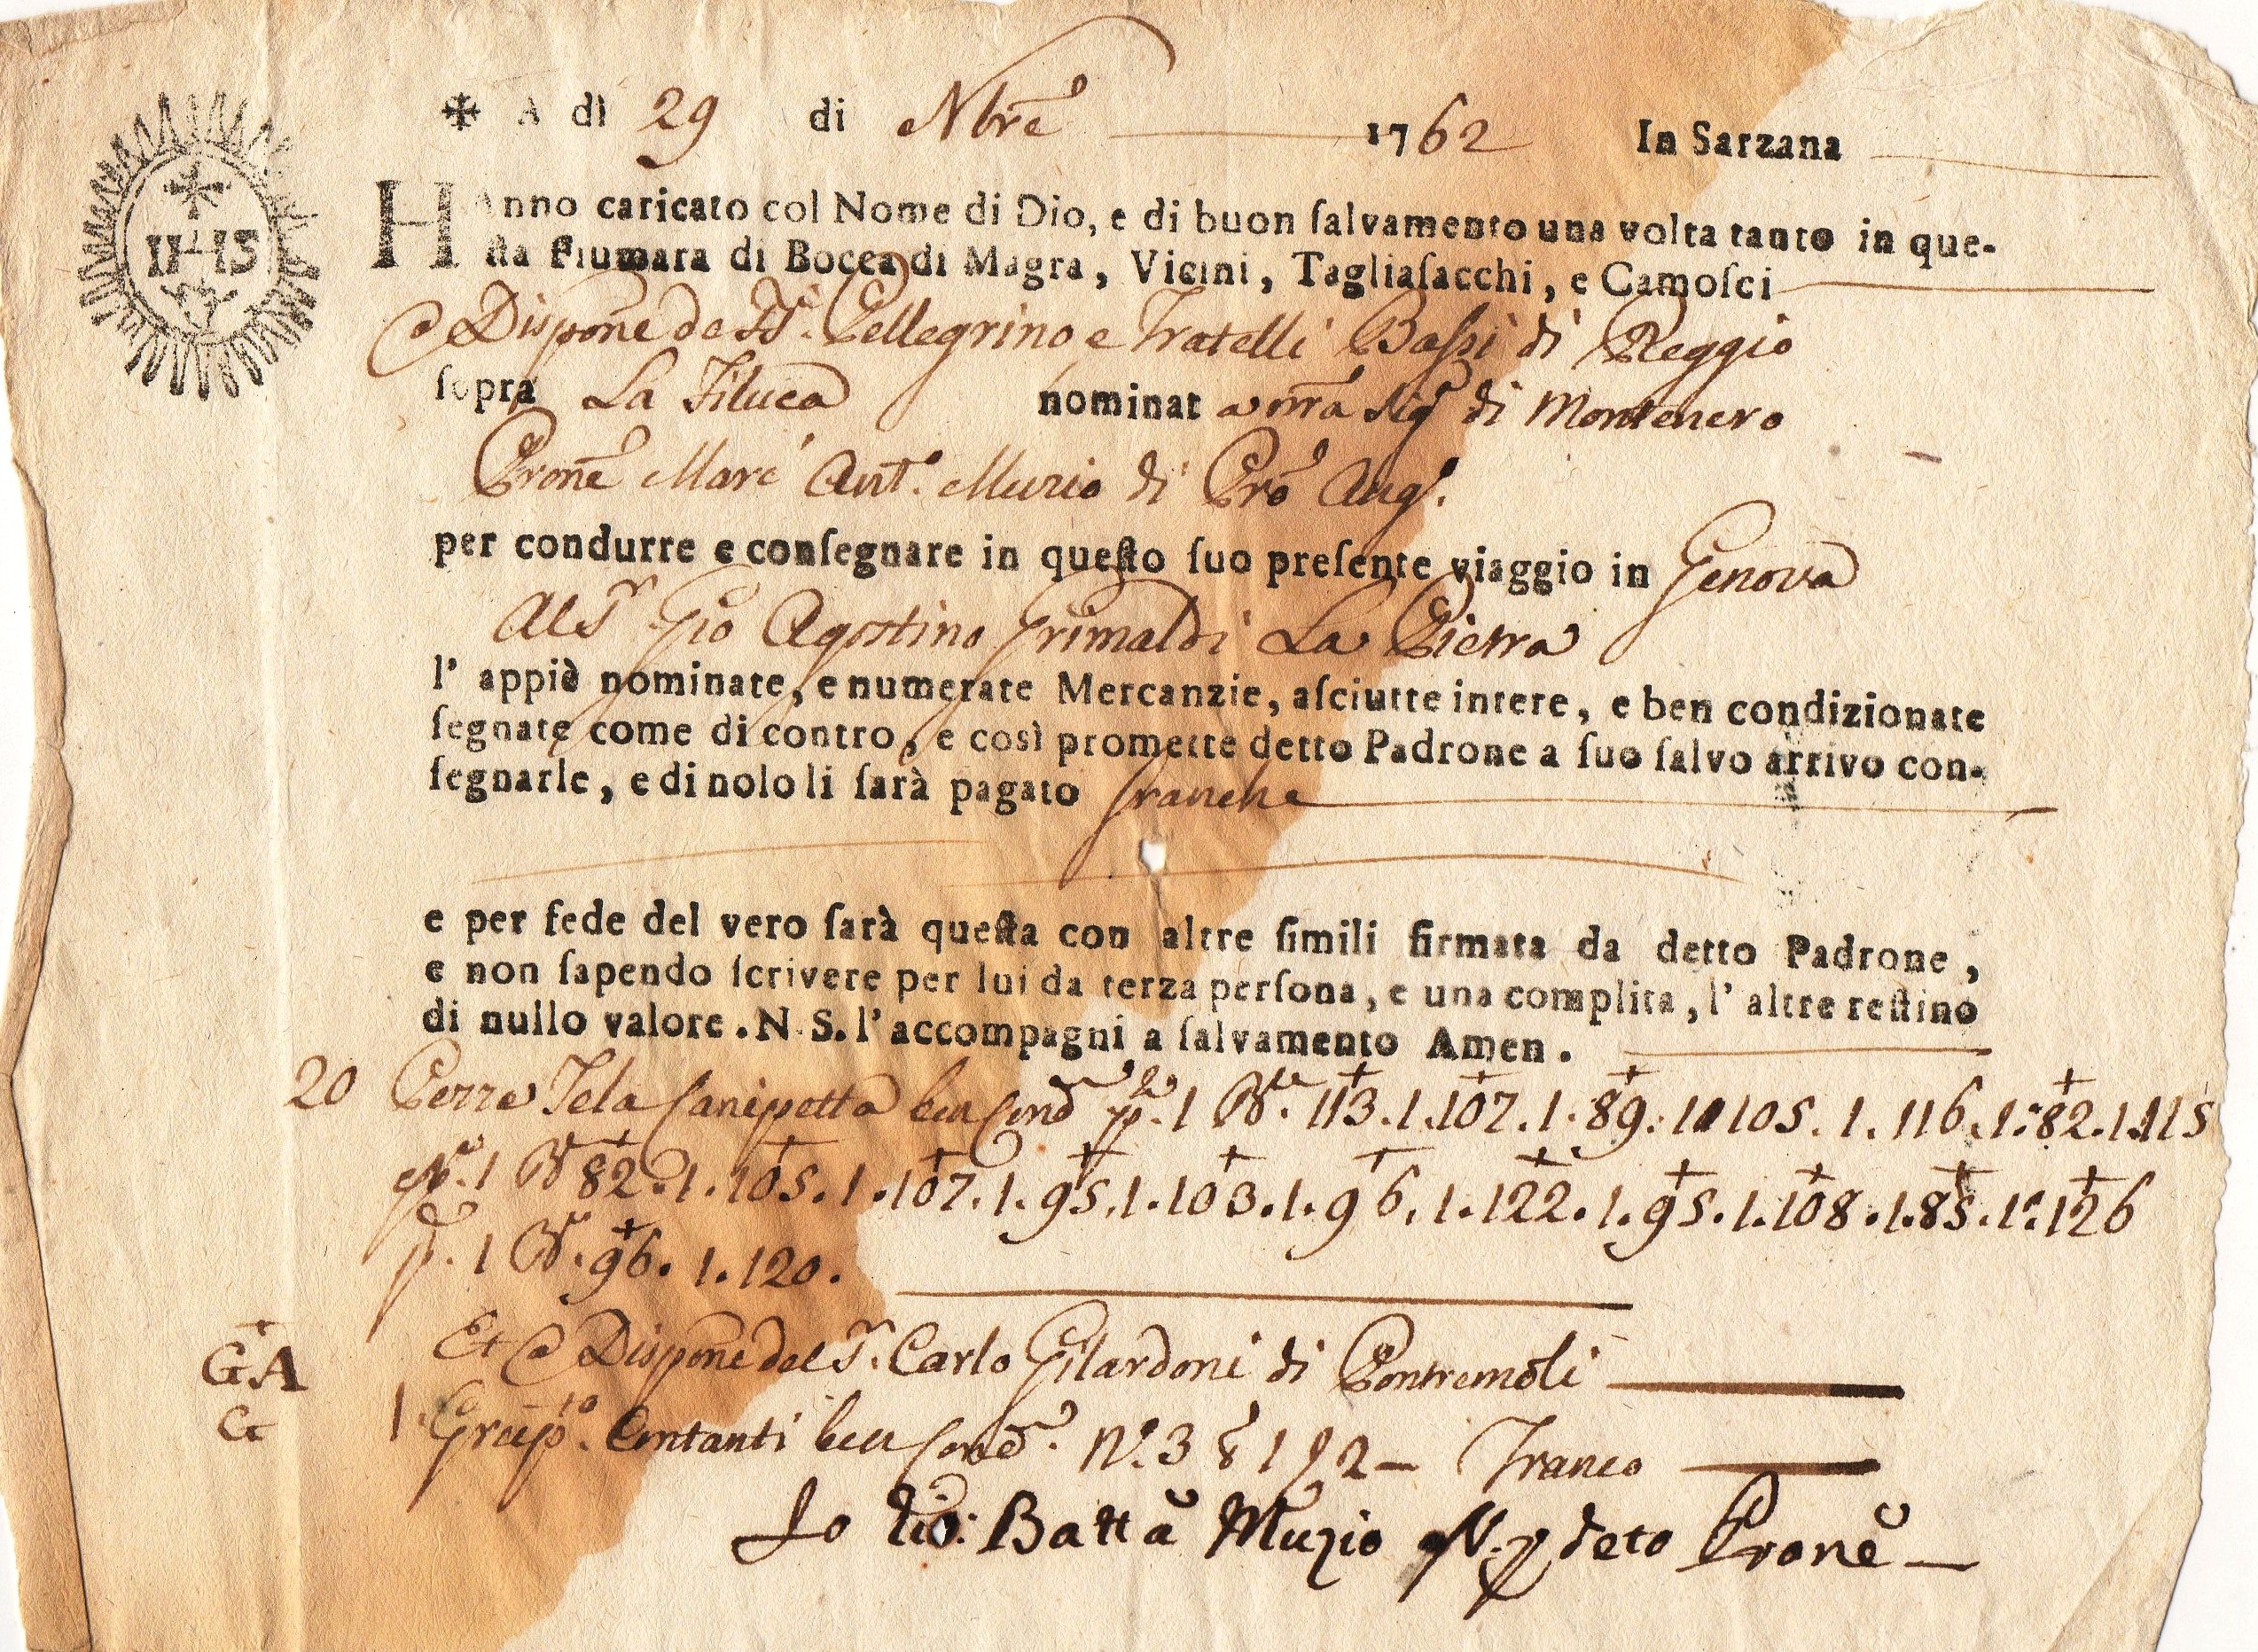 IHS
✠ A dì 29 di Nbrē 1762 In Sarzana
HAnno caricato col Nome di Dio, e di buon ſalvamento una volta tanto in que-
ſta Fiumara di Bocca di Magra, Vicini, Tagliaſacchi, e Camoſci
a Dispone de SS.i Pellegrino e Fratelli Baſsi di Reggio
ſopra La Filuca nominat a nrã Sigrã di Montenero
Pronē Marc' Ant.o Muzio di Prõ Ang.o
per condurre e conſegnare in queſto ſuo preſente viaggio in Genova
Al Sr Gio Agostino Grimaldi La Pietra
l' appiè nominate, e numerate Mercanzie, aſciutte intere, e ben condizionate
ſegnate come di contro, e così promette detto Padrone a ſuo ſalvo arrivo con-
ſegnarle, e di nolo li ſarà pagato franche
e per fede del vero ſarà queſta con altre ſimili firmata da detto Padrone,
e non ſapendo ſcrivere per lui da terza perſona, e una complita, l' altre reſtino
di nullo valore. N. S. l' accompagni a ſalvamento Amen.
20 Pezze Tela Canipetta ben Cond p. 1 Br. 113. 1. 107. 1. 89. 1 105. 1. 116. 1. 82. 1. 115
p. 1 Br 82. 1. 105. 1. 107. 1. 95. 1. 103. 1. 96. 1. 122. 1. 95. 1. 108. 1. 85. 1. 126
p. 1 Br. 96. 1. 120.
Et a Dispone del Sr. Carlo Gilardoni di Pontremoli
GA
C
1 Grup.to Contanti ben Cond. N.o 3 192 — Franco
Io Gio: Batta Muzio p deto Pronē